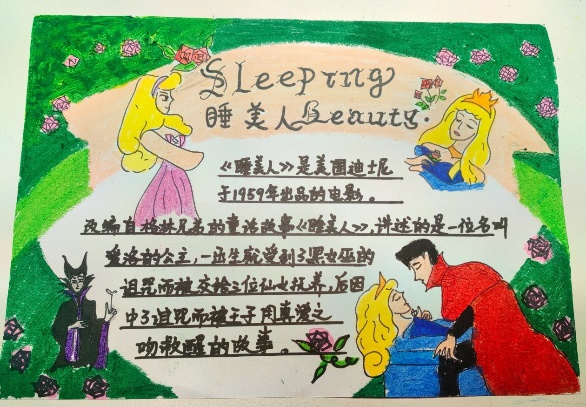 Sleeping
睡美人Beauty.
《睡美人》是美国迪士尼
于1959年出品的电影。
改编自格林兄弟的童话故事《睡美人》,讲述的是一位名叫
爱洛的公主,一出生就受到了黑女巫的
诅咒而被交给三位仙女抚养,后因
中了诅咒而被王子用真爱之
吻救醒的故事。